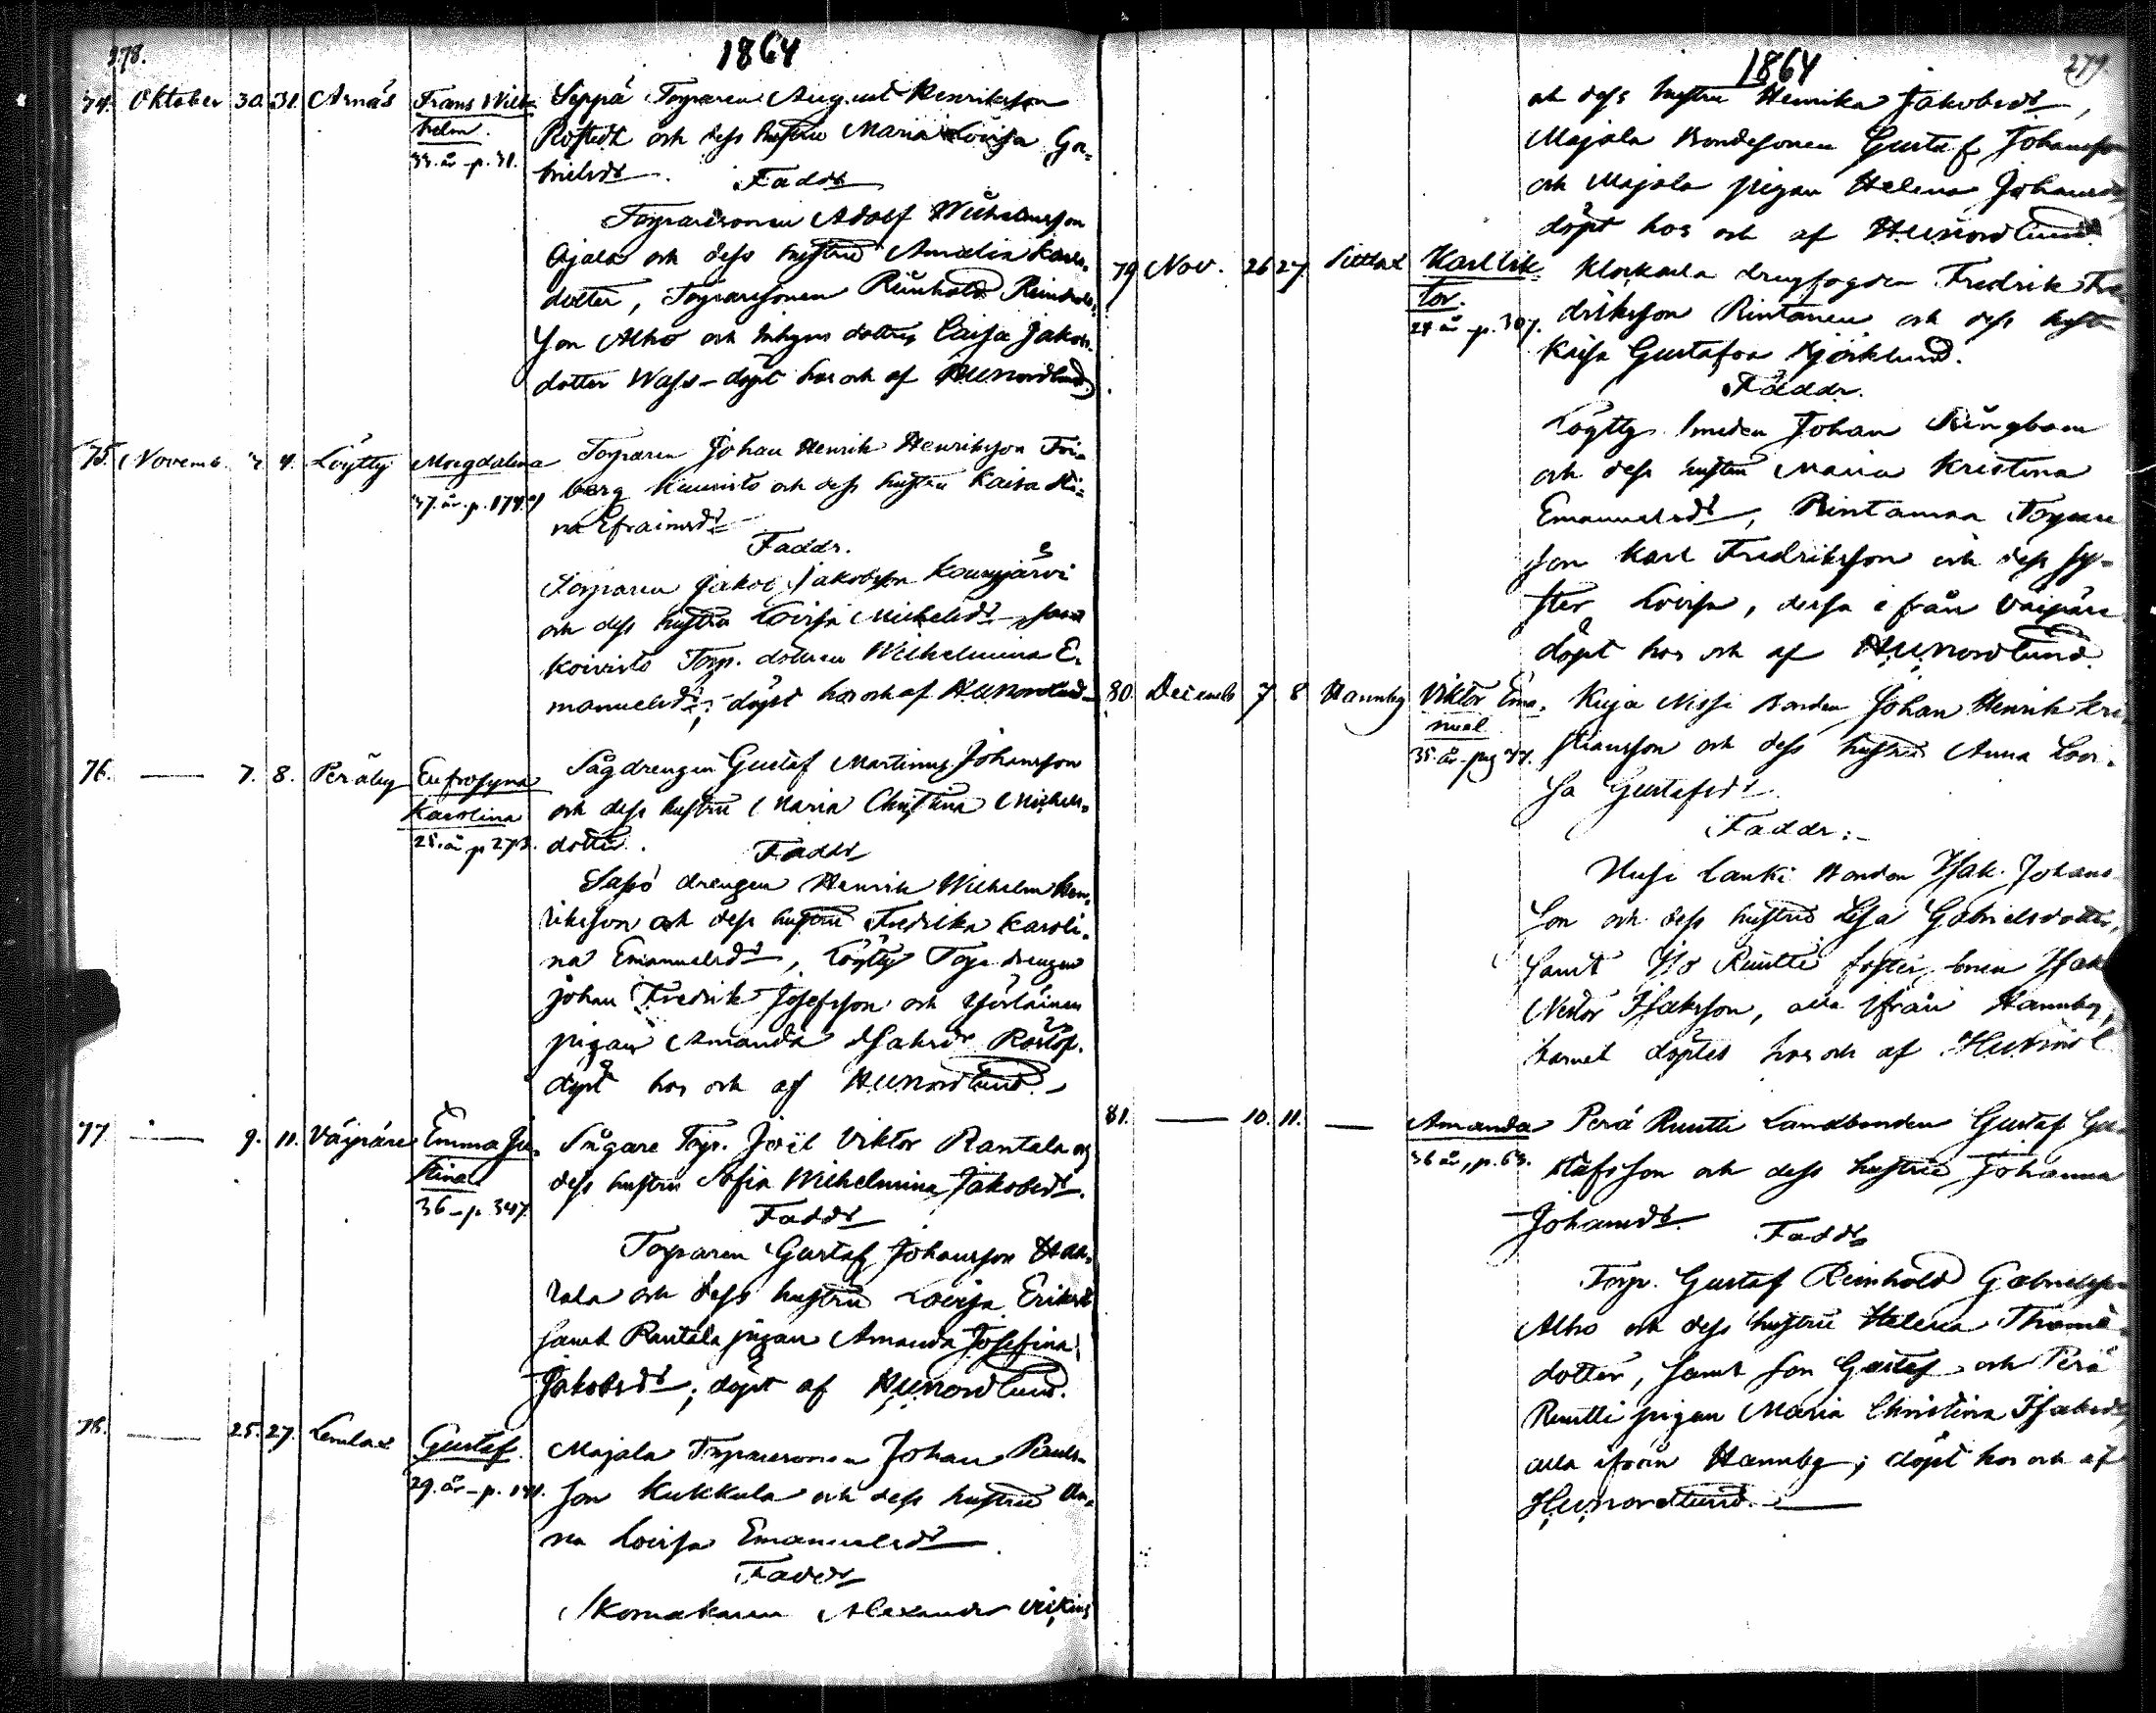 278.
1864
74. Oktober 30. 31. Arnäs Frans Wil-
helm.
33. år - p. 31.
Seppä Torparen August Henriksson
Rostedt och dess hustru Maria Lovisa Ga-
brielsdr. Faddr
Torparesonen Adolf Wilhelmsson
Ajala och dess hustru Amalia Karls-
dotter, Torparesonen Reinhold Reinholds-
son Alho och dottren Caisa Jakobs-
dotter Wass - döpt hos och af HUNordlund
75. Novemb. 3. 4. Löytty Magdalena
37. år. p. 174.
Torparen Johan Henrik Henriksson Fri-
berg Kuuisto och dess hustru Kaisa Sti-
na Efraimsdr
Faddr.
Torparen Jakob Jakobsson Kounjärvi
och dess hustru Lovisa Michelsdr samt
Koivisto Torp. dottren Wilhelmina E-
manuelsdr; döpt hos och af HUNordlund
76. — 7. 8. Peräby Eufrosyna
Karolina
25. år p 273.
Sågdrengen Gustaf Martinus Johansson
och dess hustru Maria Christina Michels-
dotter. Faddr
Saso drengen Henrik Wilhelm Hen-
riksson och dess hustru Fredrika Karoli-
na Emanuelsdr, Löytty Torp drengen
Johan Fredrik Josefsson och
pigan Amanda Isaksdr
döpt hos och af HUNordlund.
77 — 9. 11. Väipäre Emma Ju-
stina
36 - p. 347.
Sågare Torp. Joël Viktor Rantala och
dess hustru Sofia Wilhelmina Jakobsdr.
Faddr
Torparen Gustaf Johansson Haa-
tala och dess hustru Lovisa Eriksdr
samt Rantala pigan Amanda Josefina
Jakobsdr; döpt af HUNordlund.
78. — 25. 27. Lemlax Gustaf
29. år - p. 141.
Majala Torparesonen Johan Pauls-
son Kukkula och dess hustru An-
na Lovisa Emanuelsdr
Faddr
Skomakaren Alexander Wiking
1864
279
och dess hustru Henrika Jakobsdr,
Majala Bondesonen Gustaf Johansson
och Majala pigan Helena Johansdr,
döpt hos och af HUNordlund.
79 Nov. 26 27. Sittlax Karl Vik-
tor.
24 år - p. 307.
Klockarla drengfogden Fredrik Fre-
driksson Rintanen och dess hustru
Kaisa Gustafva Björklund.
Faddr.
Löytty smeden Johan Ringbom
och dess hustru Maria Kristina
Emanuelsdr, Rintamaa Torpare
son Karl Fredriksson och dess sy-
ster Lovisa, dessa ifrån Väipäre
döpt hos och af HUNordlund.
80. Decemb 7 8 Hannby Viktor Ema-
nuel
35. år - pag 77.
Kuja Nissi Bonden Johan Henrik Kri-
stiansson och dess hustru Anna Lovi-
sa Gustafsdr.
Faddr:-
Husi Lauki Bonden Isak Johans-
son och dess hustru Lisa Gabrielsdotter,
samt Iso Ruutti foster sonen Isak
Nestor Isaksson, alla ifrån Hannby,
barnet döptes hos och af HUNordl
81. — 10. 11. — Amanda
36 år, p. 63.
Perä Ruutti Landbonden Gustaf Gu-
stafsson och dess hustru Johanna
Johansdr. Faddr
Torp. Gustaf Reinhold Gabrielsson
Alho och dess hustru Helena Thomæ-
dotter, samt son Gustaf och Perä
Ruutti pigan Maria Christina Isaksdr,
alla ifrån Hannby; döpt hos och af
HUNordlund. —